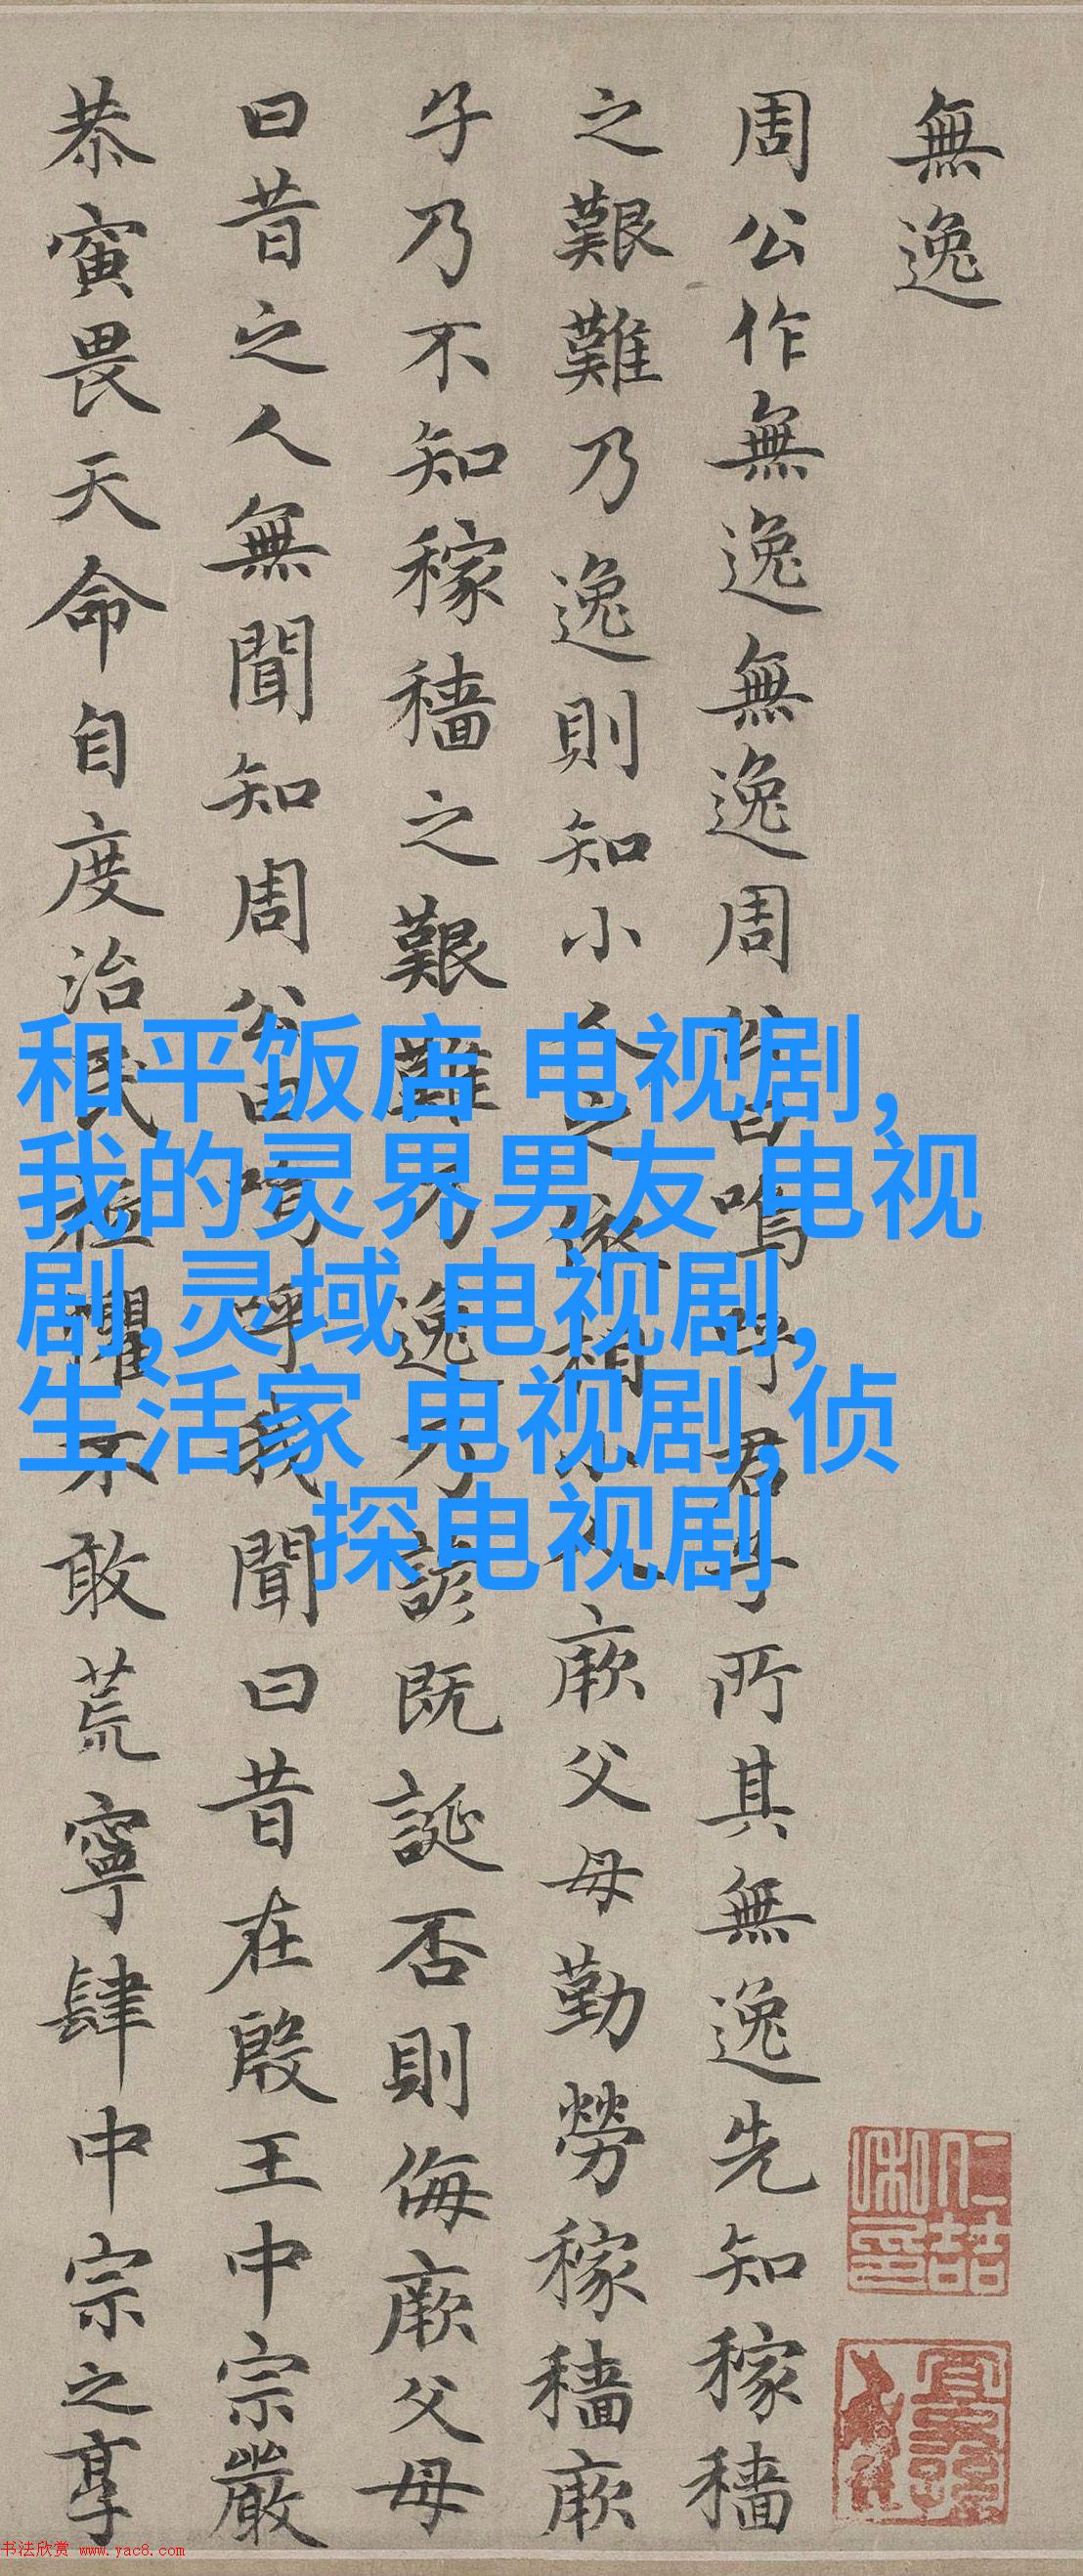 無逸
周公作無逸無逸周公曰嗚呼君子所其無逸先知稼穡
之艱難乃逸則知小人之依相小人厥父母勤勞稼穡厥
子乃不知稼穡之艱難乃逸乃諺既誕否則侮厥父母
曰昔之人無聞知周公曰嗚呼我聞曰昔在殷王中宗嚴
恭寅畏天命自度治民祗懼不敢荒寧肆中宗之享
和平饭店 电视剧,
我的灵界男友 电视
剧,灵域 电视剧,
生活家 电视剧,侦
探电视剧
书法欣赏 www.yac8.com